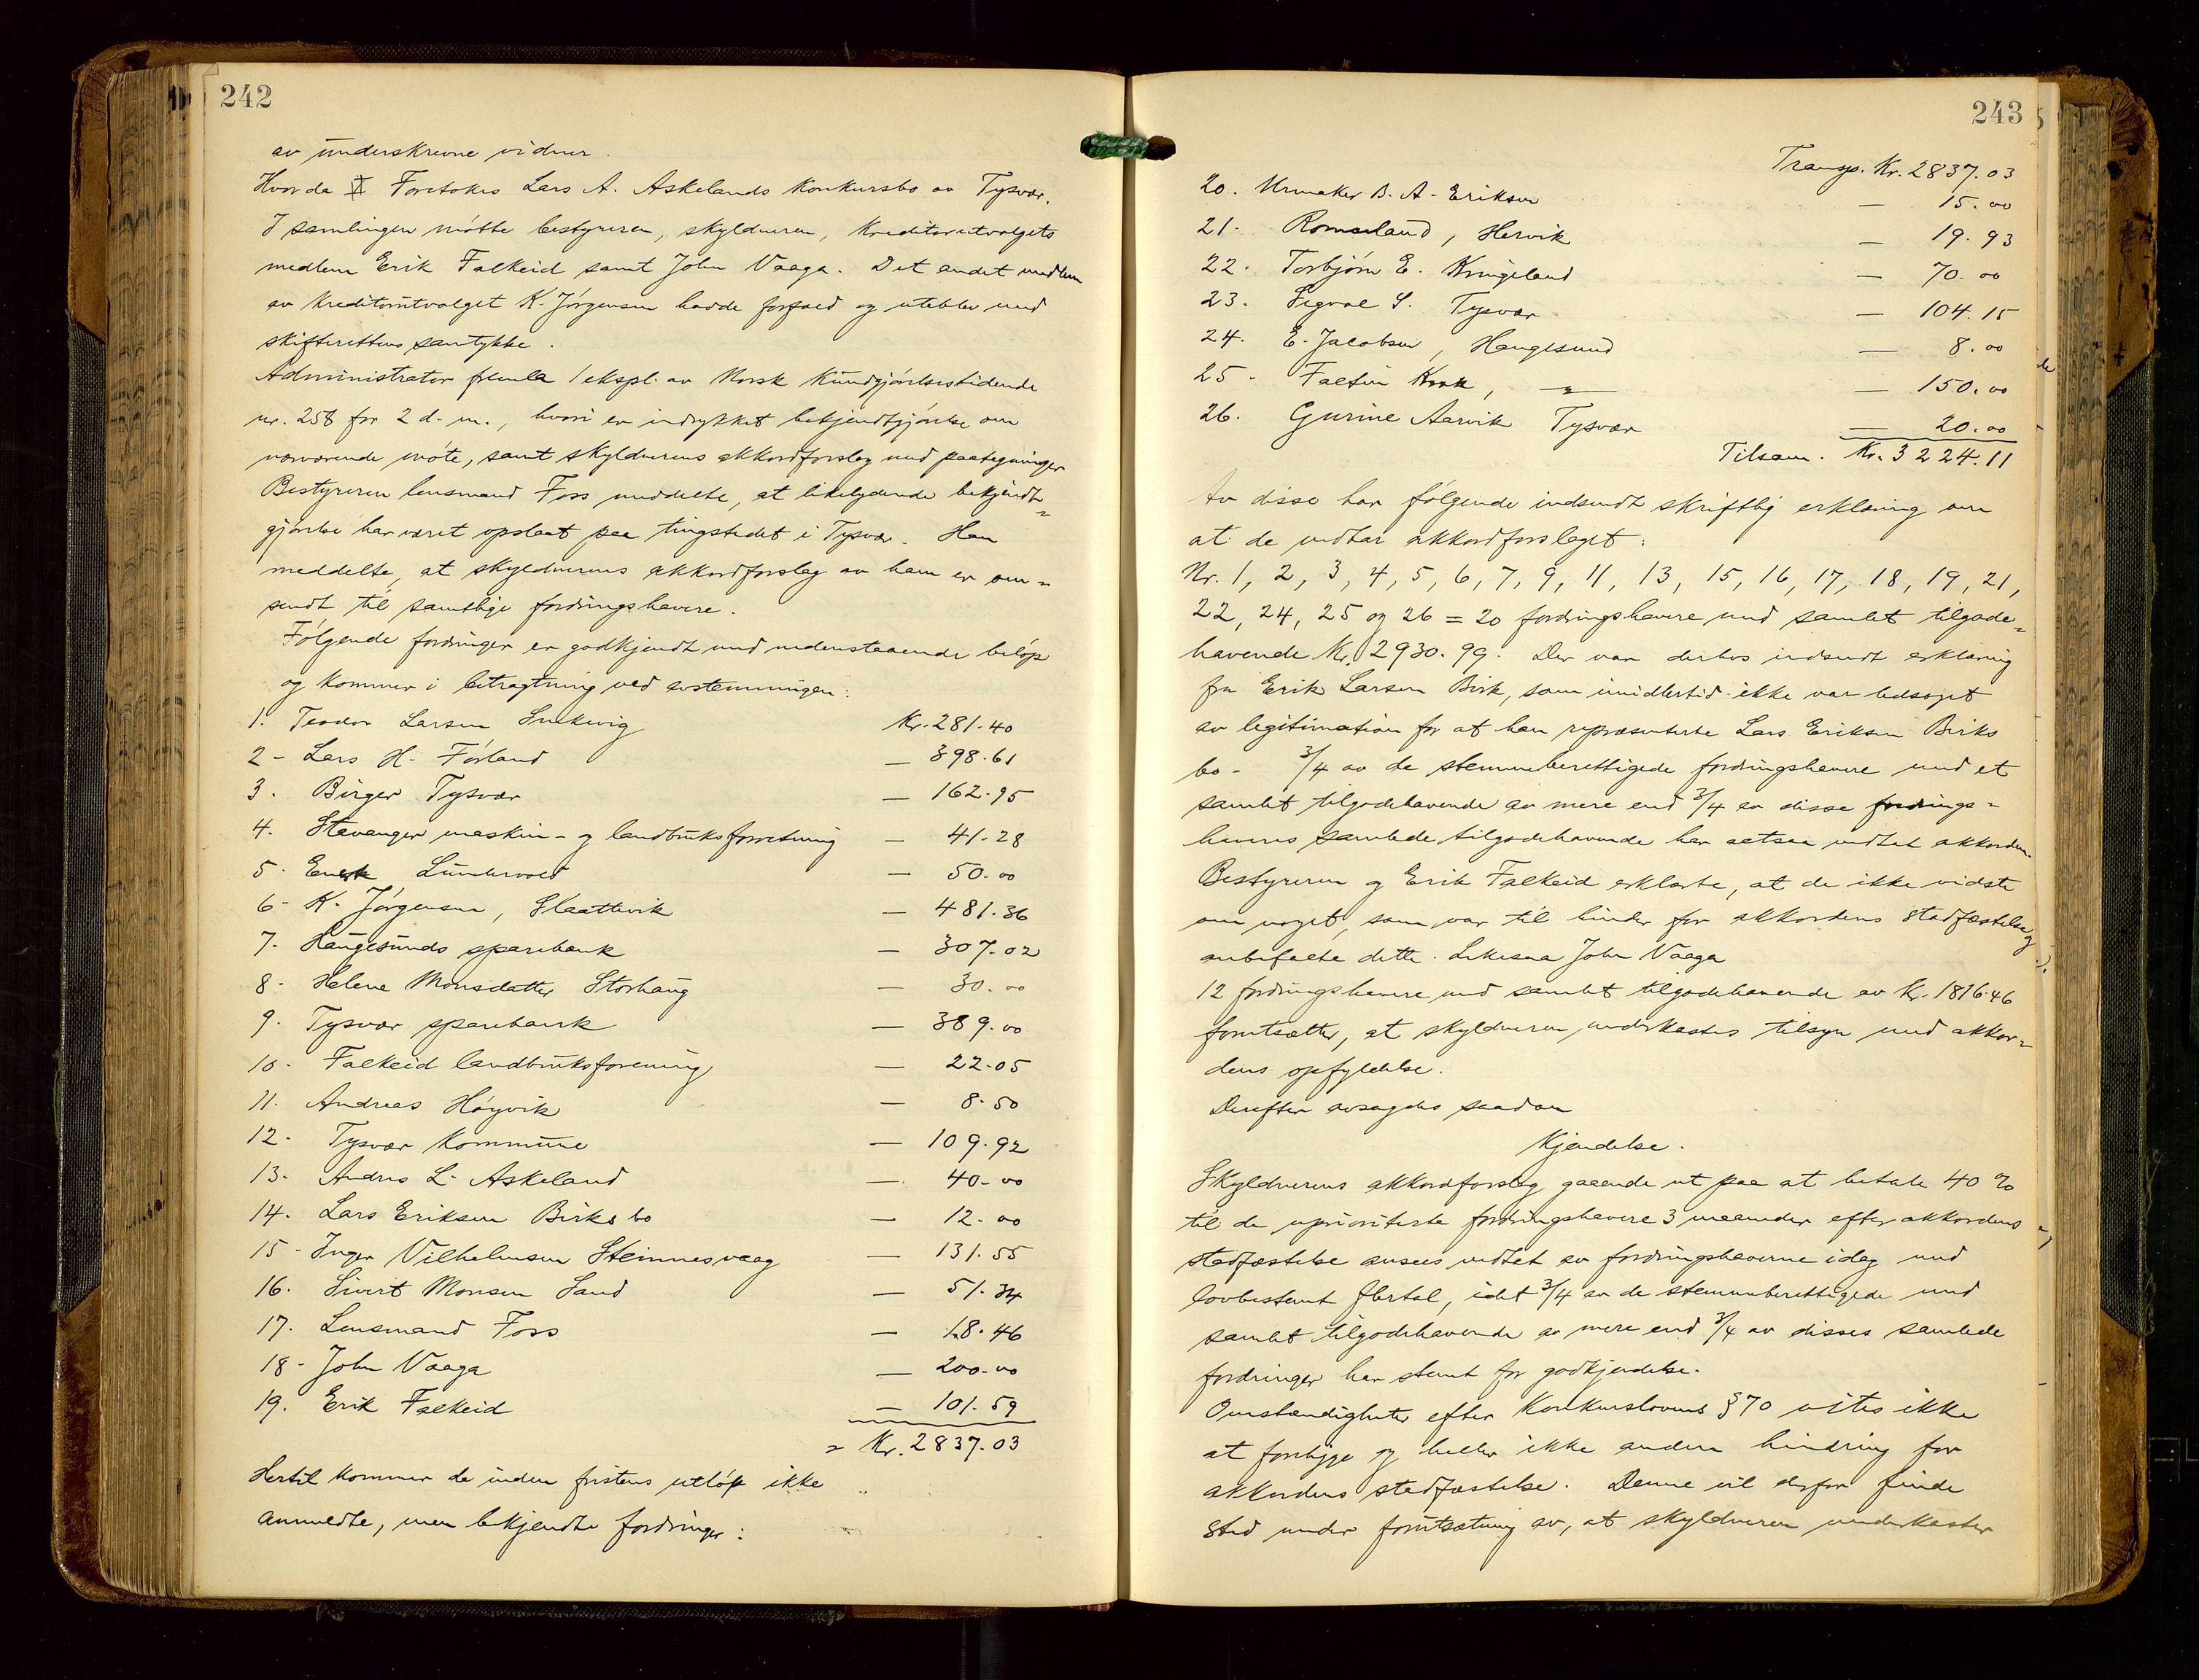 242
av underskrevne vidner.
Hvorda I Foretokes Lars A. Askelands konkursbo av Tysvær.
I samlingen møtte bestyreren, skyldneren, kreditorutvalgets
medlem Erik Falkeid samt John Vaaga. Det andet medlem
av kreditorutvalget K. Jørgensen hadde forfald og uteblev med
skifterettens samtykke.
Administrator fremla 1 ekspl. av Norsk Kundgjørelsestidende
nr. 258 for 2 d. m., hvori er indrykket bekjendtgjørelse om
nærværende møte, samt skyldnerens akkordforslag med paategninger
Bestyreren lensmand Foss meddelte, at likelydende bekjendt=
gjørelse har været opslaat paa tingstedet i Tysvær. Han
meddelte, at skyldnerens akkordforslag av ham er om=
sendt til samtlige fordringshavere.
Følgende fordringer er godkjendt med nedenstaaende beløp
og kommer i betragtning ved avstemningen:
1. Teodor Larsen Kr. 281.40
2 - Lars H. Førland — 398.61
3. Birger Tysvær — 162.95
4. Stavanger maskin- og landbruksforretning — 41.28
5. Lundervold — 50.00
6 - K. Jørgensen, Slaattevik — 481.36
7. Haugesunds sparebank — 307.02
8 - Helene Monsdatter Storhaug — 30.00
9. Tysvær sparebank — 389.00
10. Falkeid landbruksforening — 22.05
11. Andreas Høyvik — 8.50
12. Tysvær kommune — 109.92
13. Andreas L. Askeland — 40.00
14. Lars Eriksen Birks bo — 12.00
15 - Inger Vilhelmsen Steinnesvaag — 131.55
16. Sivert Monsen Sand — 51.34
17. Lensmand Foss — 18.46
18 - John Vaaga — 200.00
19. Erik Falkeid — 101.59
= Kr. 2837.03
Hertil kommer de inden fristens utløp ikke
anmeldte, men bekjendte fordringer:
243
Transp. Kr. 2837.03
20. Urmaker B. A. Eriksen — 15.00
21. Romseland, Hervik — 19.93
22. Torbjørn E. Kringeland — 70.00
23. Sigval S. Tysvær — 104.15
24. E. Jacobsen, Haugesund — 8.00
25 - Faltin Krak, —"— — 150.00
26. Gurine Aarvik Tysvær — 20.00
Tilsam. Kr. 3224.11
Av disse har følgende indsendt skriftlig erklæring om
at de vedtar akkordforslaget:
Nr. 1, 2, 3, 4, 5, 6, 7, 9, 11, 13, 15, 16, 17, 18, 19, 21,
22, 24, 25 og 26 = 20 fordringshavere med samlet tilgode=
havende Kr. 2930.99. Der var derhos indsendt erklæring
fra Erik Larsen Birk, som imidlertid ikke var ledsaget
av legitimation for at han repræsenterte Lars Eriksen Birks
bo - 3/4 av de stemmeberettigede fordringshavere med et
samlet tilgodehavende av mere end 3/4 av disse fordrings=
haveres samlede tilgodehavende har altsaa vedtat akkorden.
Bestyreren og Erik Falkeid erklærte, at de ikke vidste
om noget, som var til hinder for akkordens stadfæstelse og
anbefalte dette. Likesaa John Vaaga
12 fordringshavere med samlet tilgodehavende av Kr. 1816.46
forutsætter, at skyldneren underkastes tilsyn med akkor=
dens opfyldelse.
Derefter avsagdes saadan
Kjendelse.
Skyldnerens akkordforslag gaaende ut paa at betale 40 %
til de uprioriterte fordringshavere 3 maaneder efter akkordens
stadfæstelse ansees vedtat av fordringshaverne idag med
lovbestemt flertal, idet 3/4 av de stemmeberettigede med
samlet tilgodehavende av mere end 3/4 av disses samlede
fordringer har stemt for godkjendelse.
Omstændigheter efter Konkurslovens § 70 vites ikke
at foreligge og heller ikke anden hindring for
akkordens stadfæstelse. Denne vil derfor finde
sted under forutsætning av, at skyldneren underkaster